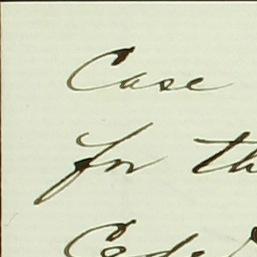 Case
for th